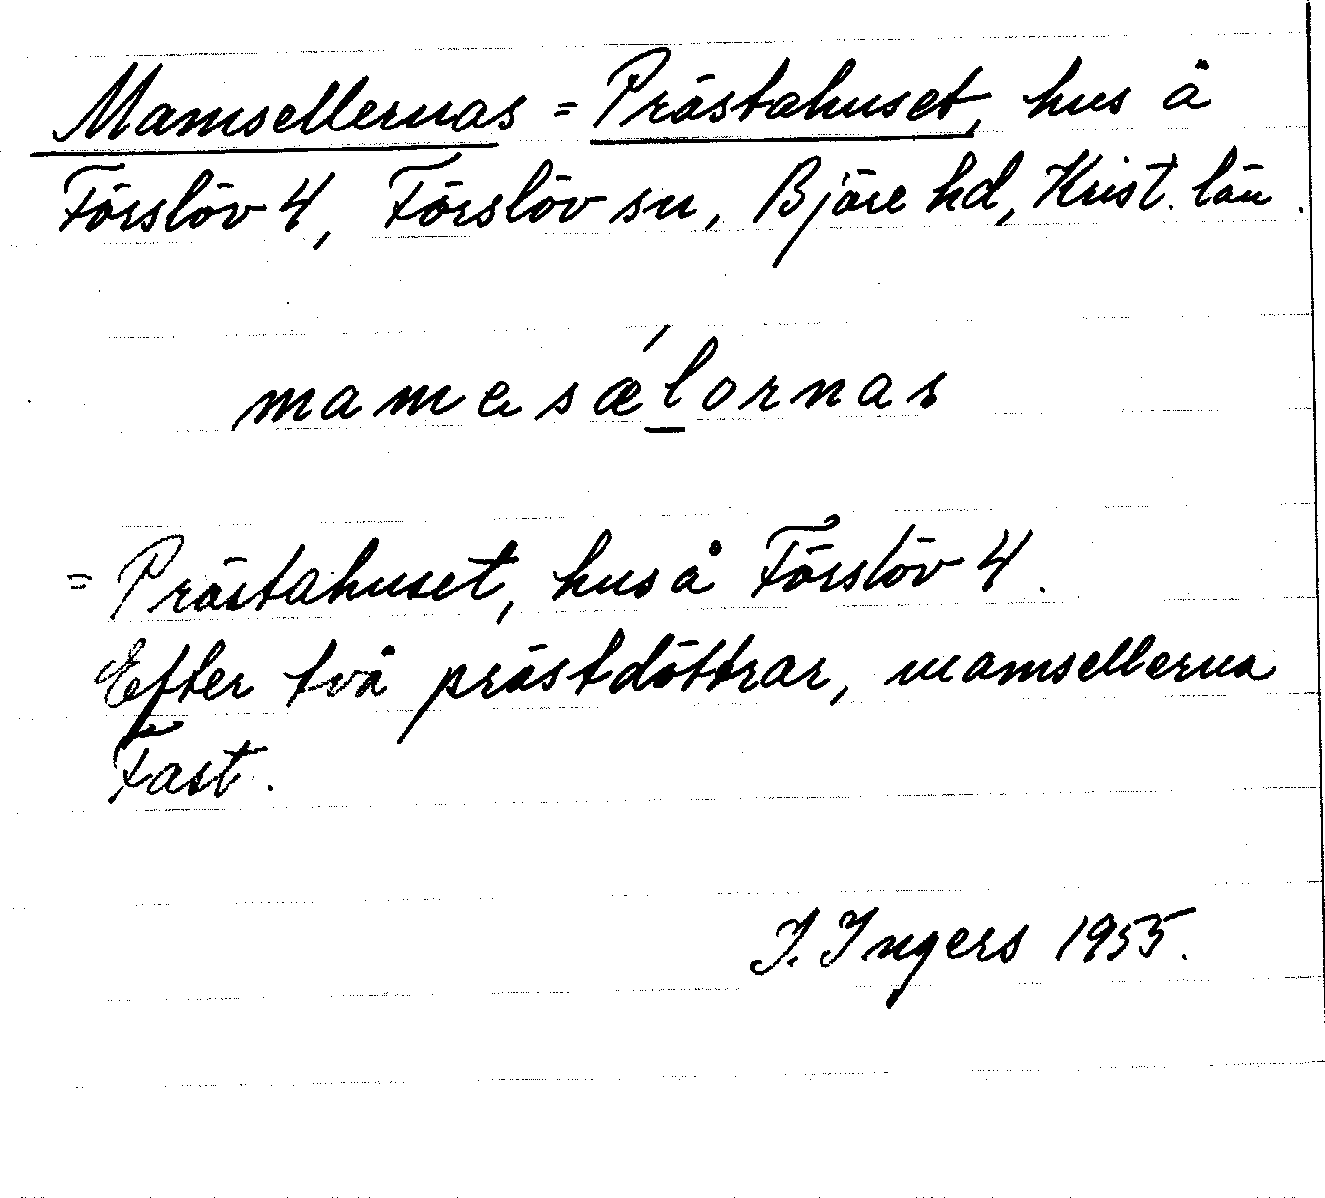 Mamsellernas = Prästahuset, hus å
Förslöv 4, Förslöv sn, Bjäre hd, Krist. län.
mamesǽlornas
= Prästahuset, hus å Förslöv 4.
Efter två prästdöttrar, mamsellerna
Fast.
I. Ingers 1955.